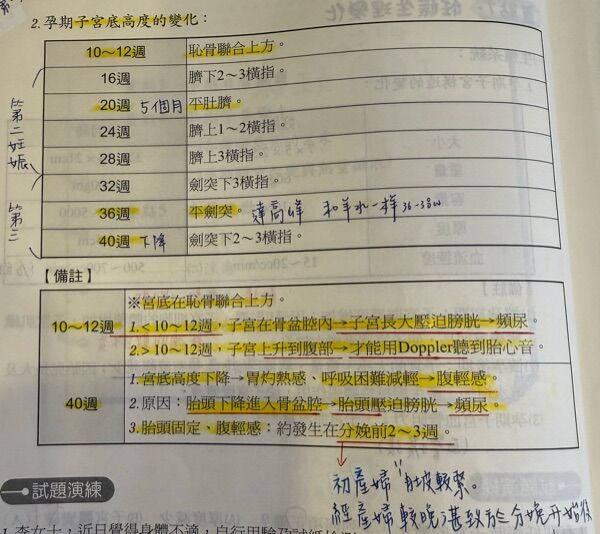 2.孕期子宮底高度的變化：
10～12週 恥骨聯合上方。
16週 臍下2～3橫指。
20週 5個月 平肚臍。
24週 臍上1～2橫指。
28週 臍上3橫指。
32週 劍突下3橫指。
36週 平劍突。達高峰 和羊水一樣36-38w
40週下降 劍突下2～3橫指。
第二妊娠
第三
【備註】
※宮底在恥骨聯合上方。
10～12週 1.＜10～12週，子宮在骨盆腔內→子宮長大壓迫膀胱→頻尿。
2.＞10～12週，子宮上升到腹部→才能用Doppler聽到胎心音。
1.宮底高度下降→胃灼熱感、呼吸困難減輕→腹輕感。
40週 2.原因：胎頭下降進入骨盆腔→胎頭壓迫膀胱→頻尿。
3.胎頭固定、腹輕感：約發生在分娩前2～3週。
初產婦"肚皮較緊。
經產婦較晚，甚致於分娩开始後
試題演練
1.李女士，近日覺得身體不適，自行用驗孕試紙